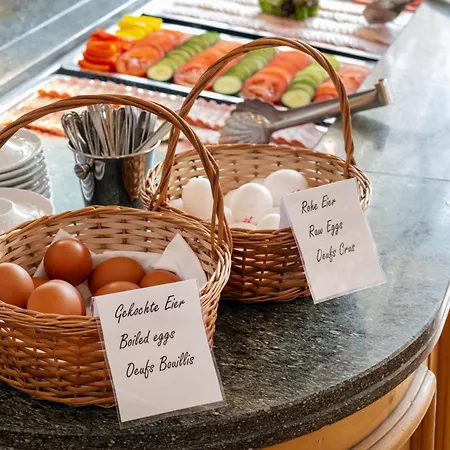 Rohe Eier
Raw Eggs
Oeufs Crus
Gekochte Eier
Boiled eggs
Oeufs Bowillis